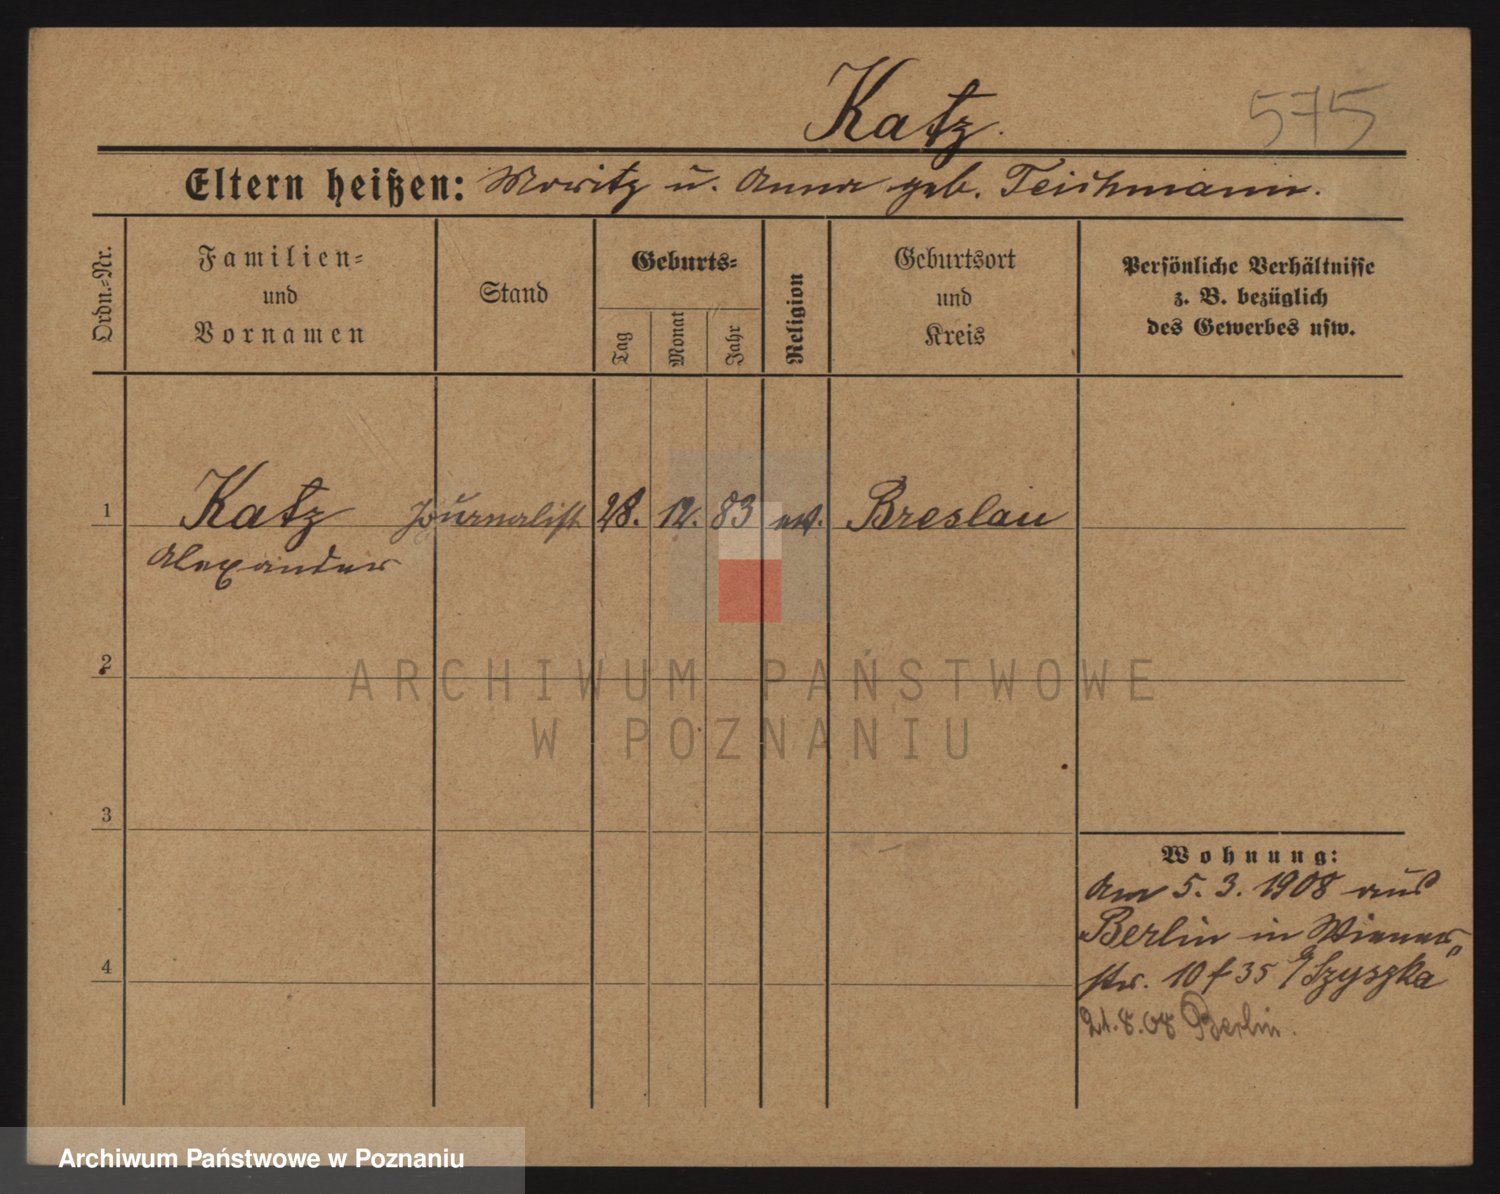 Katz.
575
Eltern heißen: Moritz u. Anna geb. Teichmann.
Ordn.-Nr.
Familien-
und
Vornamen
Stand
Geburts-
Tag
Monat
Jahr
Religion
Geburtsort
und
Kreis
Persönliche Verhältnisse
z. B. bezüglich
des Gewerbes usw.
1
Katz Journalist 28. 12. 83 ev. Breslau
Alexander
2
ARCHIWUM PAŃSTWOWE
W POZNANIU
3
4
Wohnung:
Am 5. 3. 1908 aus
Berlin in Wiener
str. 10 f 35 Szyszka
21.8.08 Berlin.
Archiwum Państwowe w Poznaniu